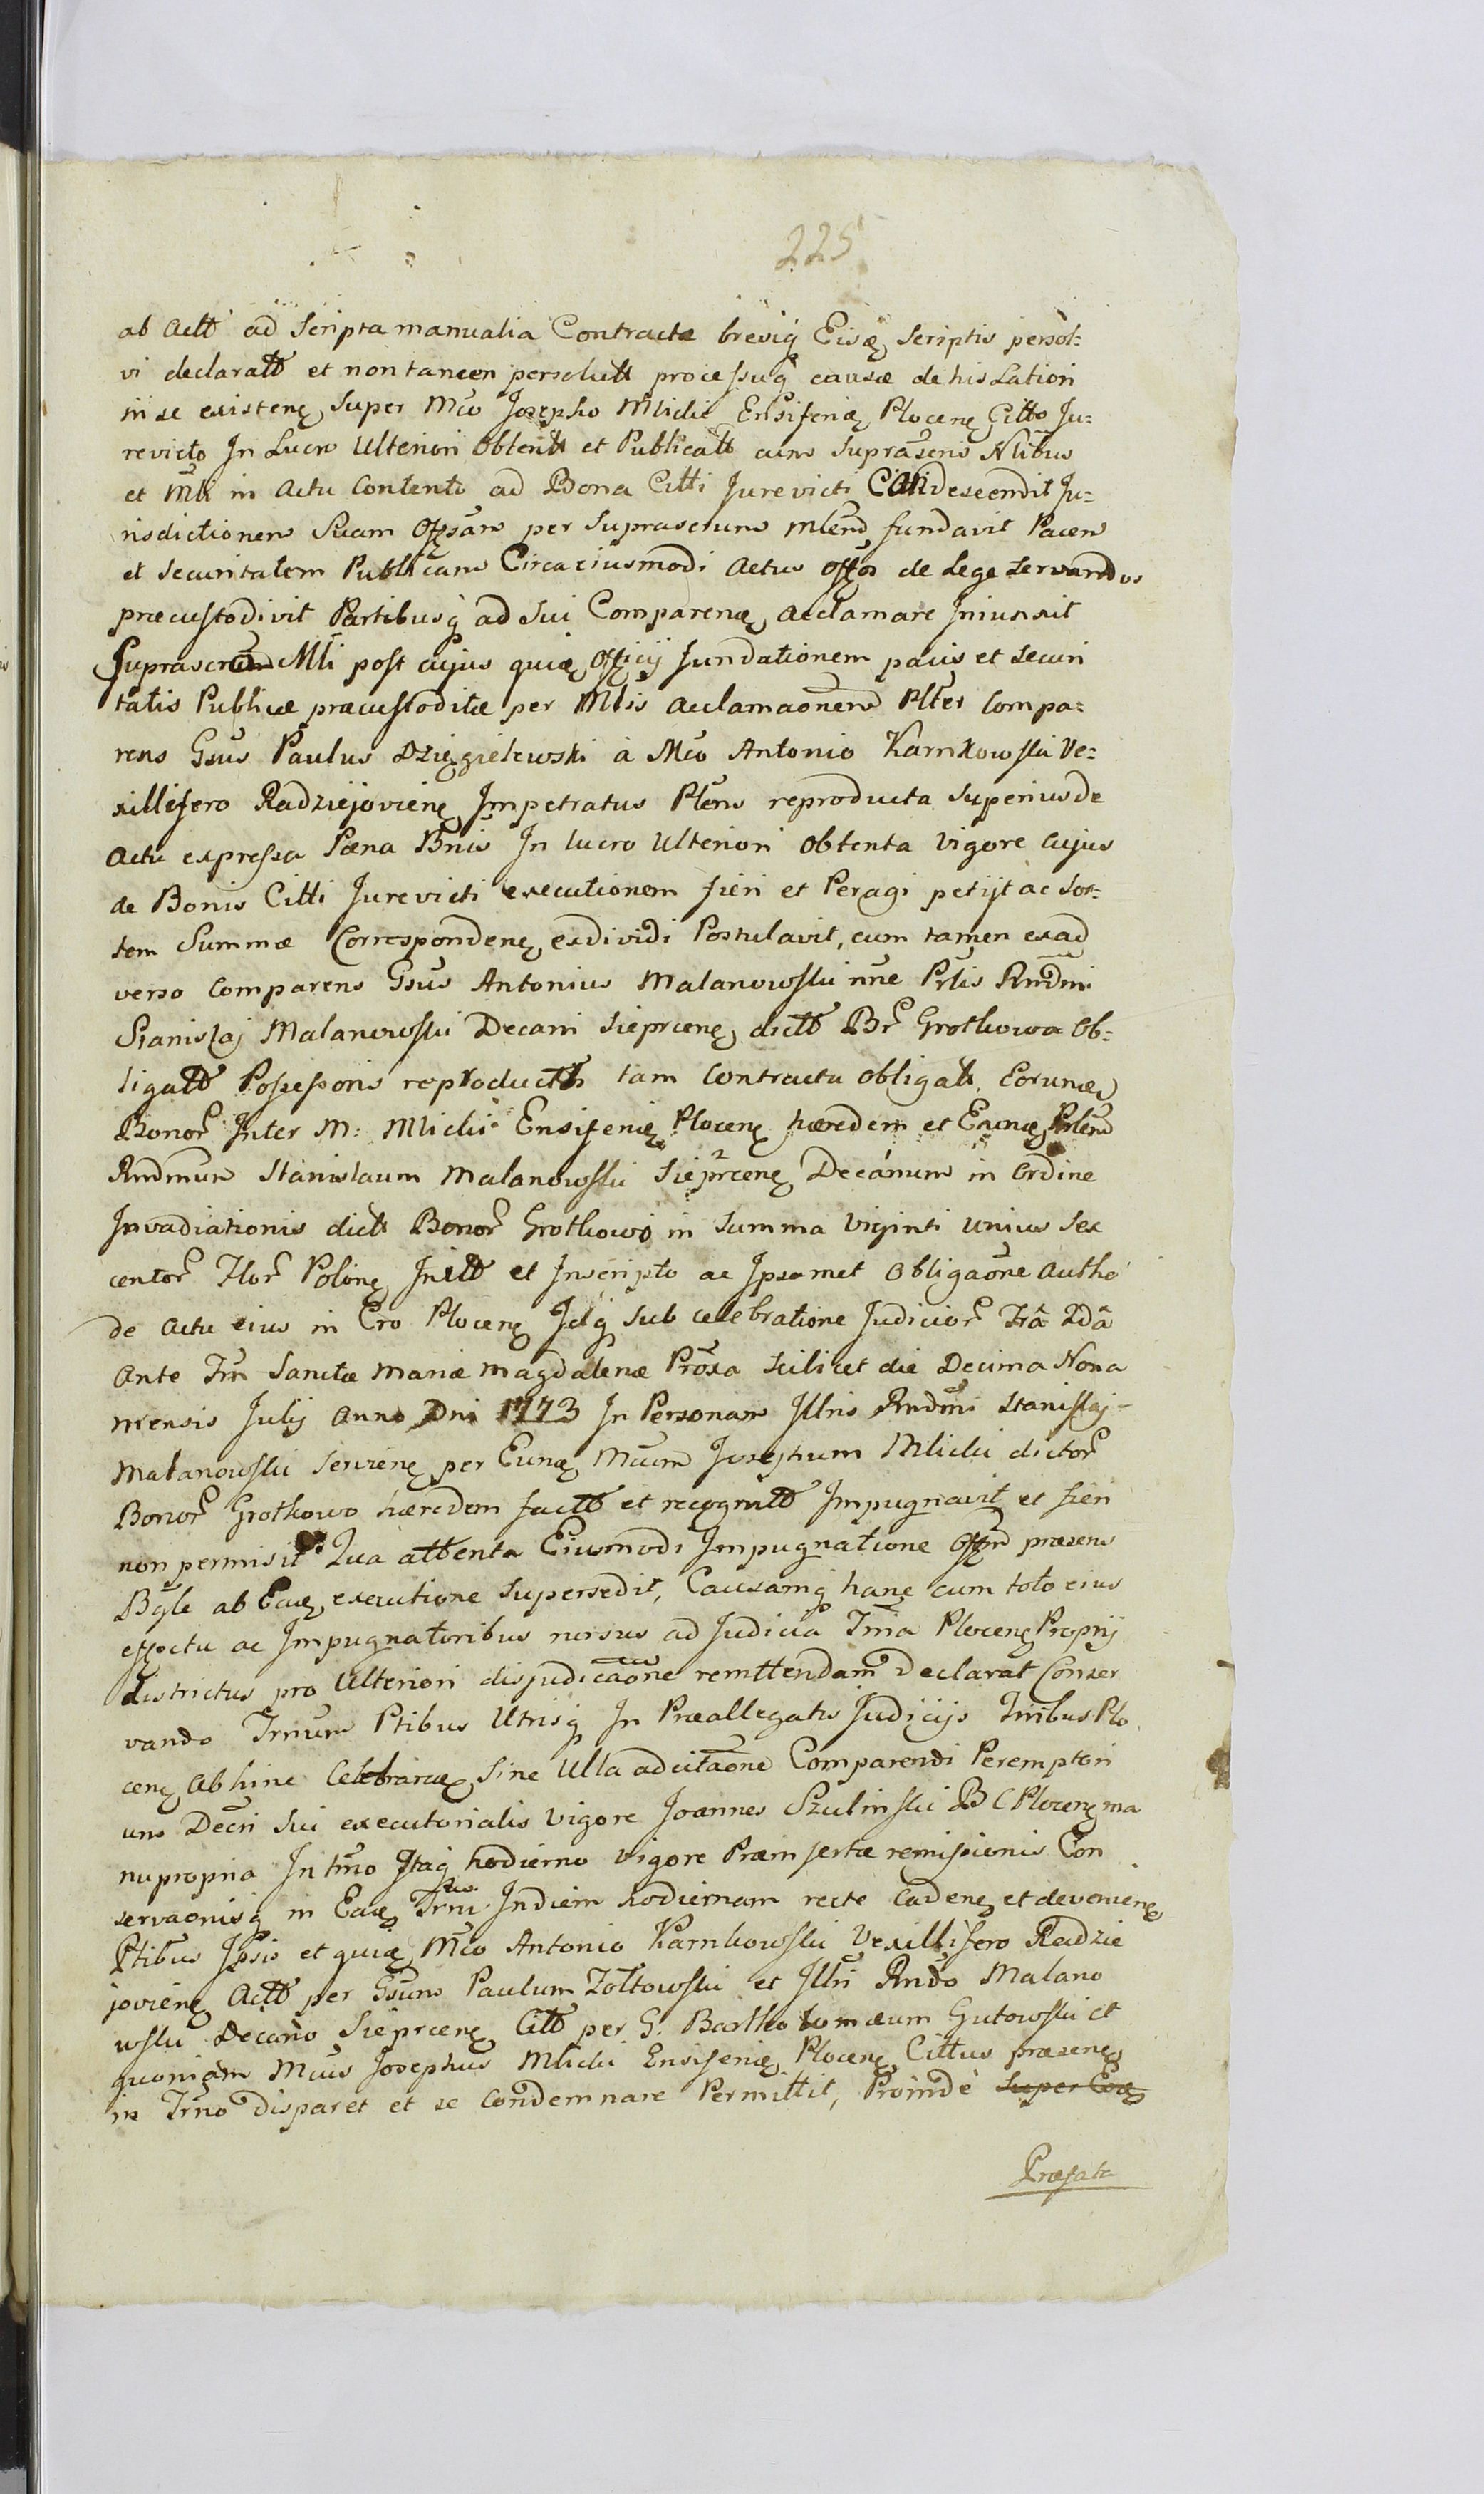 225
ab Actt ad Scripta manualia Contracta brevią Eisq, Scriptis persol=
vi declaratt et non tamen persolutt processuq causæ de his Lation
in se existenę super Mco Josepho Mlicki Ensiferię Plocenę Citto Ju=
revicto In Lucro Ulteriori Obtentt et Publicatt cum Suprascris Nlibus
et Mli in Actu Contento ad Bona Citti Jurevicti Condescendit Ju=
risdictionem Suam Offsam per Suprascrum mlem fundavit Pacem
et Securitatem Publicam Circa eiusmodi Actus Offos de Lege servandos
præcustodivit Partibusq ad Sui Comparenę acclamare Iniunxit
Suprascrum Mli post cujus quię Officij fundationem pacis et Securi
tatis Publicæ præcustoditæ per Mlis Acclamaonem Plter Compa=
rens Gsus Paulus Dzięgielewski à Mco Antonio Karnkowski Ve=
xillifero Radziejovienę Impetratus Plens reproducta Superius de
Actu expressa Pæna Bnis In lucro Ulteriori Obtenta Vigore cujus
de Bonis Citti Jurevicti executionem fieri et Peragi petijt ac Sor=
tem Summæ Correspondenę exdividi Postulavit, cum tamen exad
verso Comparens Gsus Antonius Malanowski nne Prlis Rndmi
Stanislaj Malanowski Decani Sieprcenę dictt Br Grotkowa Ob=
ligatt Possessoris reproductis tam Contractu Obligatt. Eorumę
Bonor Inter M: Mlicki Ensiferię Plocenę hæredem et Eumę Prlem
Rndmum Stanislaum Malanowski Sieprcenę Decanum in Ordine
Invadiationis dictt Bonor Grotkowo in Summa Viginti unius Sex
centor Flor Polonę Initt et Inscripto ac Ipsamet Obligaone Autho
de Actu eius in Cro Plocenę Idq sub celebratione Judicior Trâ 2dâ
Ante Fm Sanctæ Mariæ Magdalenæ Proxa Scilicet die Decima Nona
mensis Julij Anno Dni 1773 In Personam Jllris Rndmi Stanislaj-
Malanowski Servienę per Eumę Mcum Josephum Mlicki dictor
Bonor Grotkowo hæredem factt et recognitt Impugnavit et fieri
non permisit Qua attenta Eiusmodi Impugnatione Offm præsens
Bgle ab Eaę executione Supersedit, Causamq hanc cum toto eius
effectu ac Impugnatoribus rursus ad Judicia Trria Plocenę Proprij
districtus pro Ulteriori disjudicaone remittendam Declarat Conser
vando Trnum Ptibus Utrisq In Præallegatis Judicijs Trribus Plo
cenę Abhinc Celebrarię Sine Ulla adcitaone Comparendi Peremptori
um Decri Sui executorialis Vigore Joannes Szulinski B C Plocenę ma
nupropria In tmo Itaq hodierno Vigore Præinsertæ remissionis Con
servaonisq in Eaę Trni Indiem hodiernam recte Cadenę et devenienę
Ptibus Ipsis et quię Mco Antonio Karnkowski Vexillifero Radzie
jovienę Actt per Gsum Paulum Zoltowski et Jllri Rndo Malano
wski Decano Sieprcenę Citt per G. Bartholomæum Gutowski et
quoniam Mcus Josephus Mlicki Ensiferię Plocenę Cittus præsenę
in Trno disparet et se Condemnare Permittit, Proinde Super Eoę
Præfata